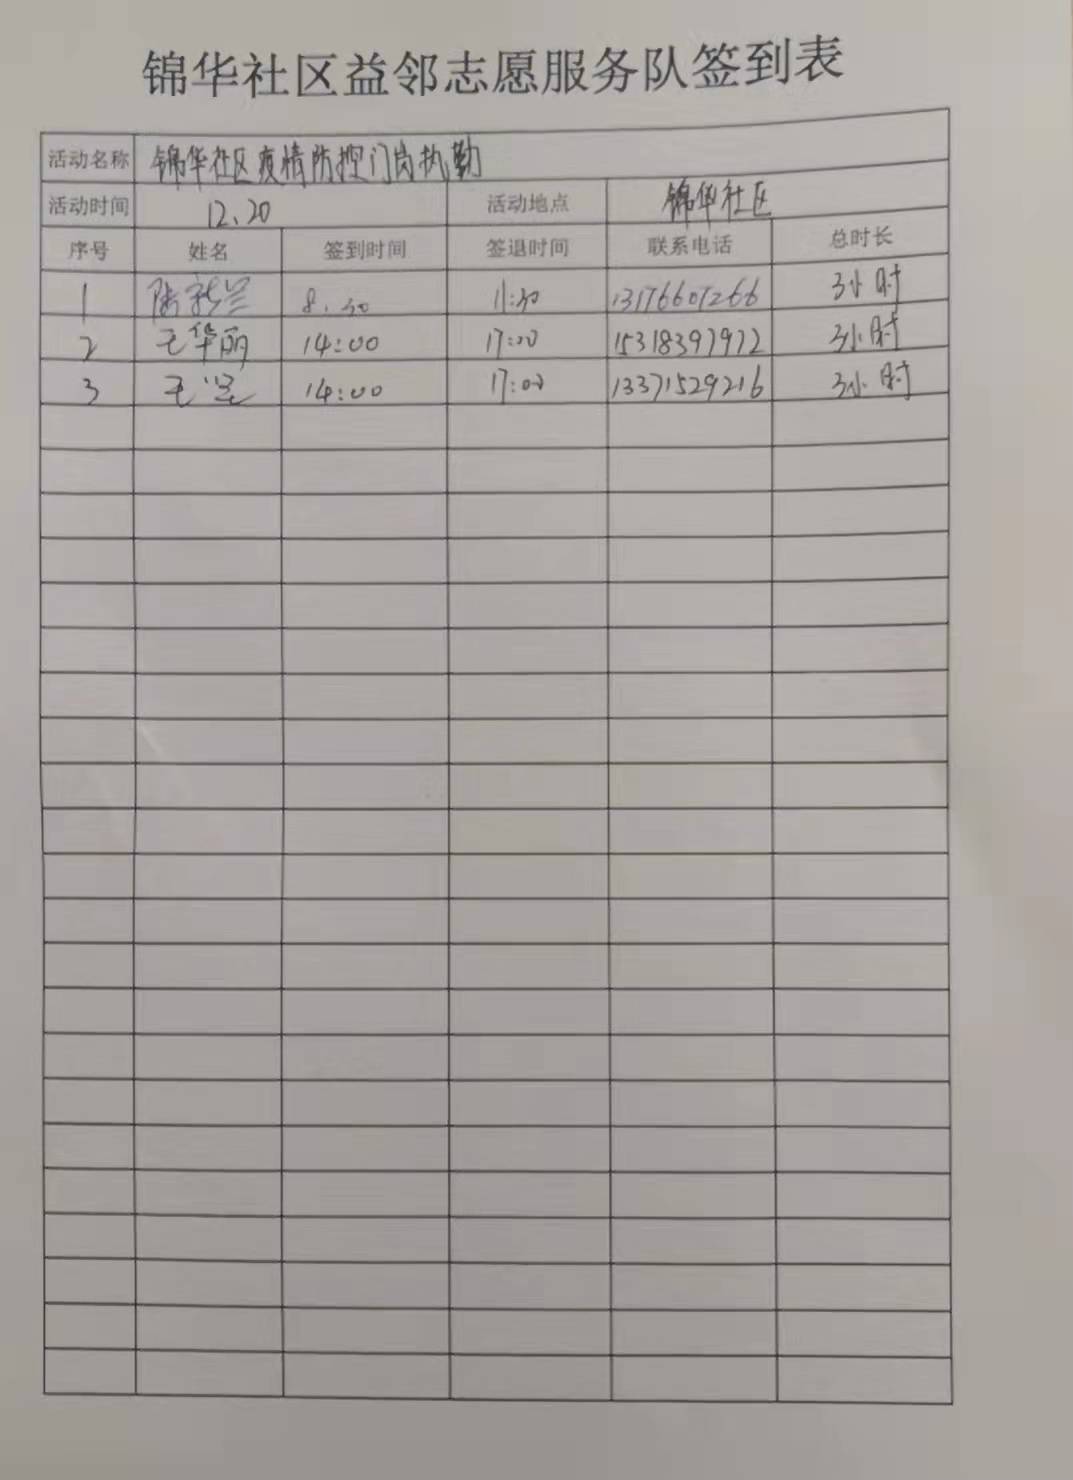 锦华社区益邻志愿服务队签到表
活动名称 锦华社区疫情防控门岗执勤
活动时间 12.20 活动地点 锦华社区
序号 姓名 签到时间 签退时间 联系电话 总时长
1 陆新兰 8.30 11:30 13176607266 3小时
2 王华丽 14:00 17:00 15318397972 3小时
3 王 14:00 17:00 13371529216 3小时